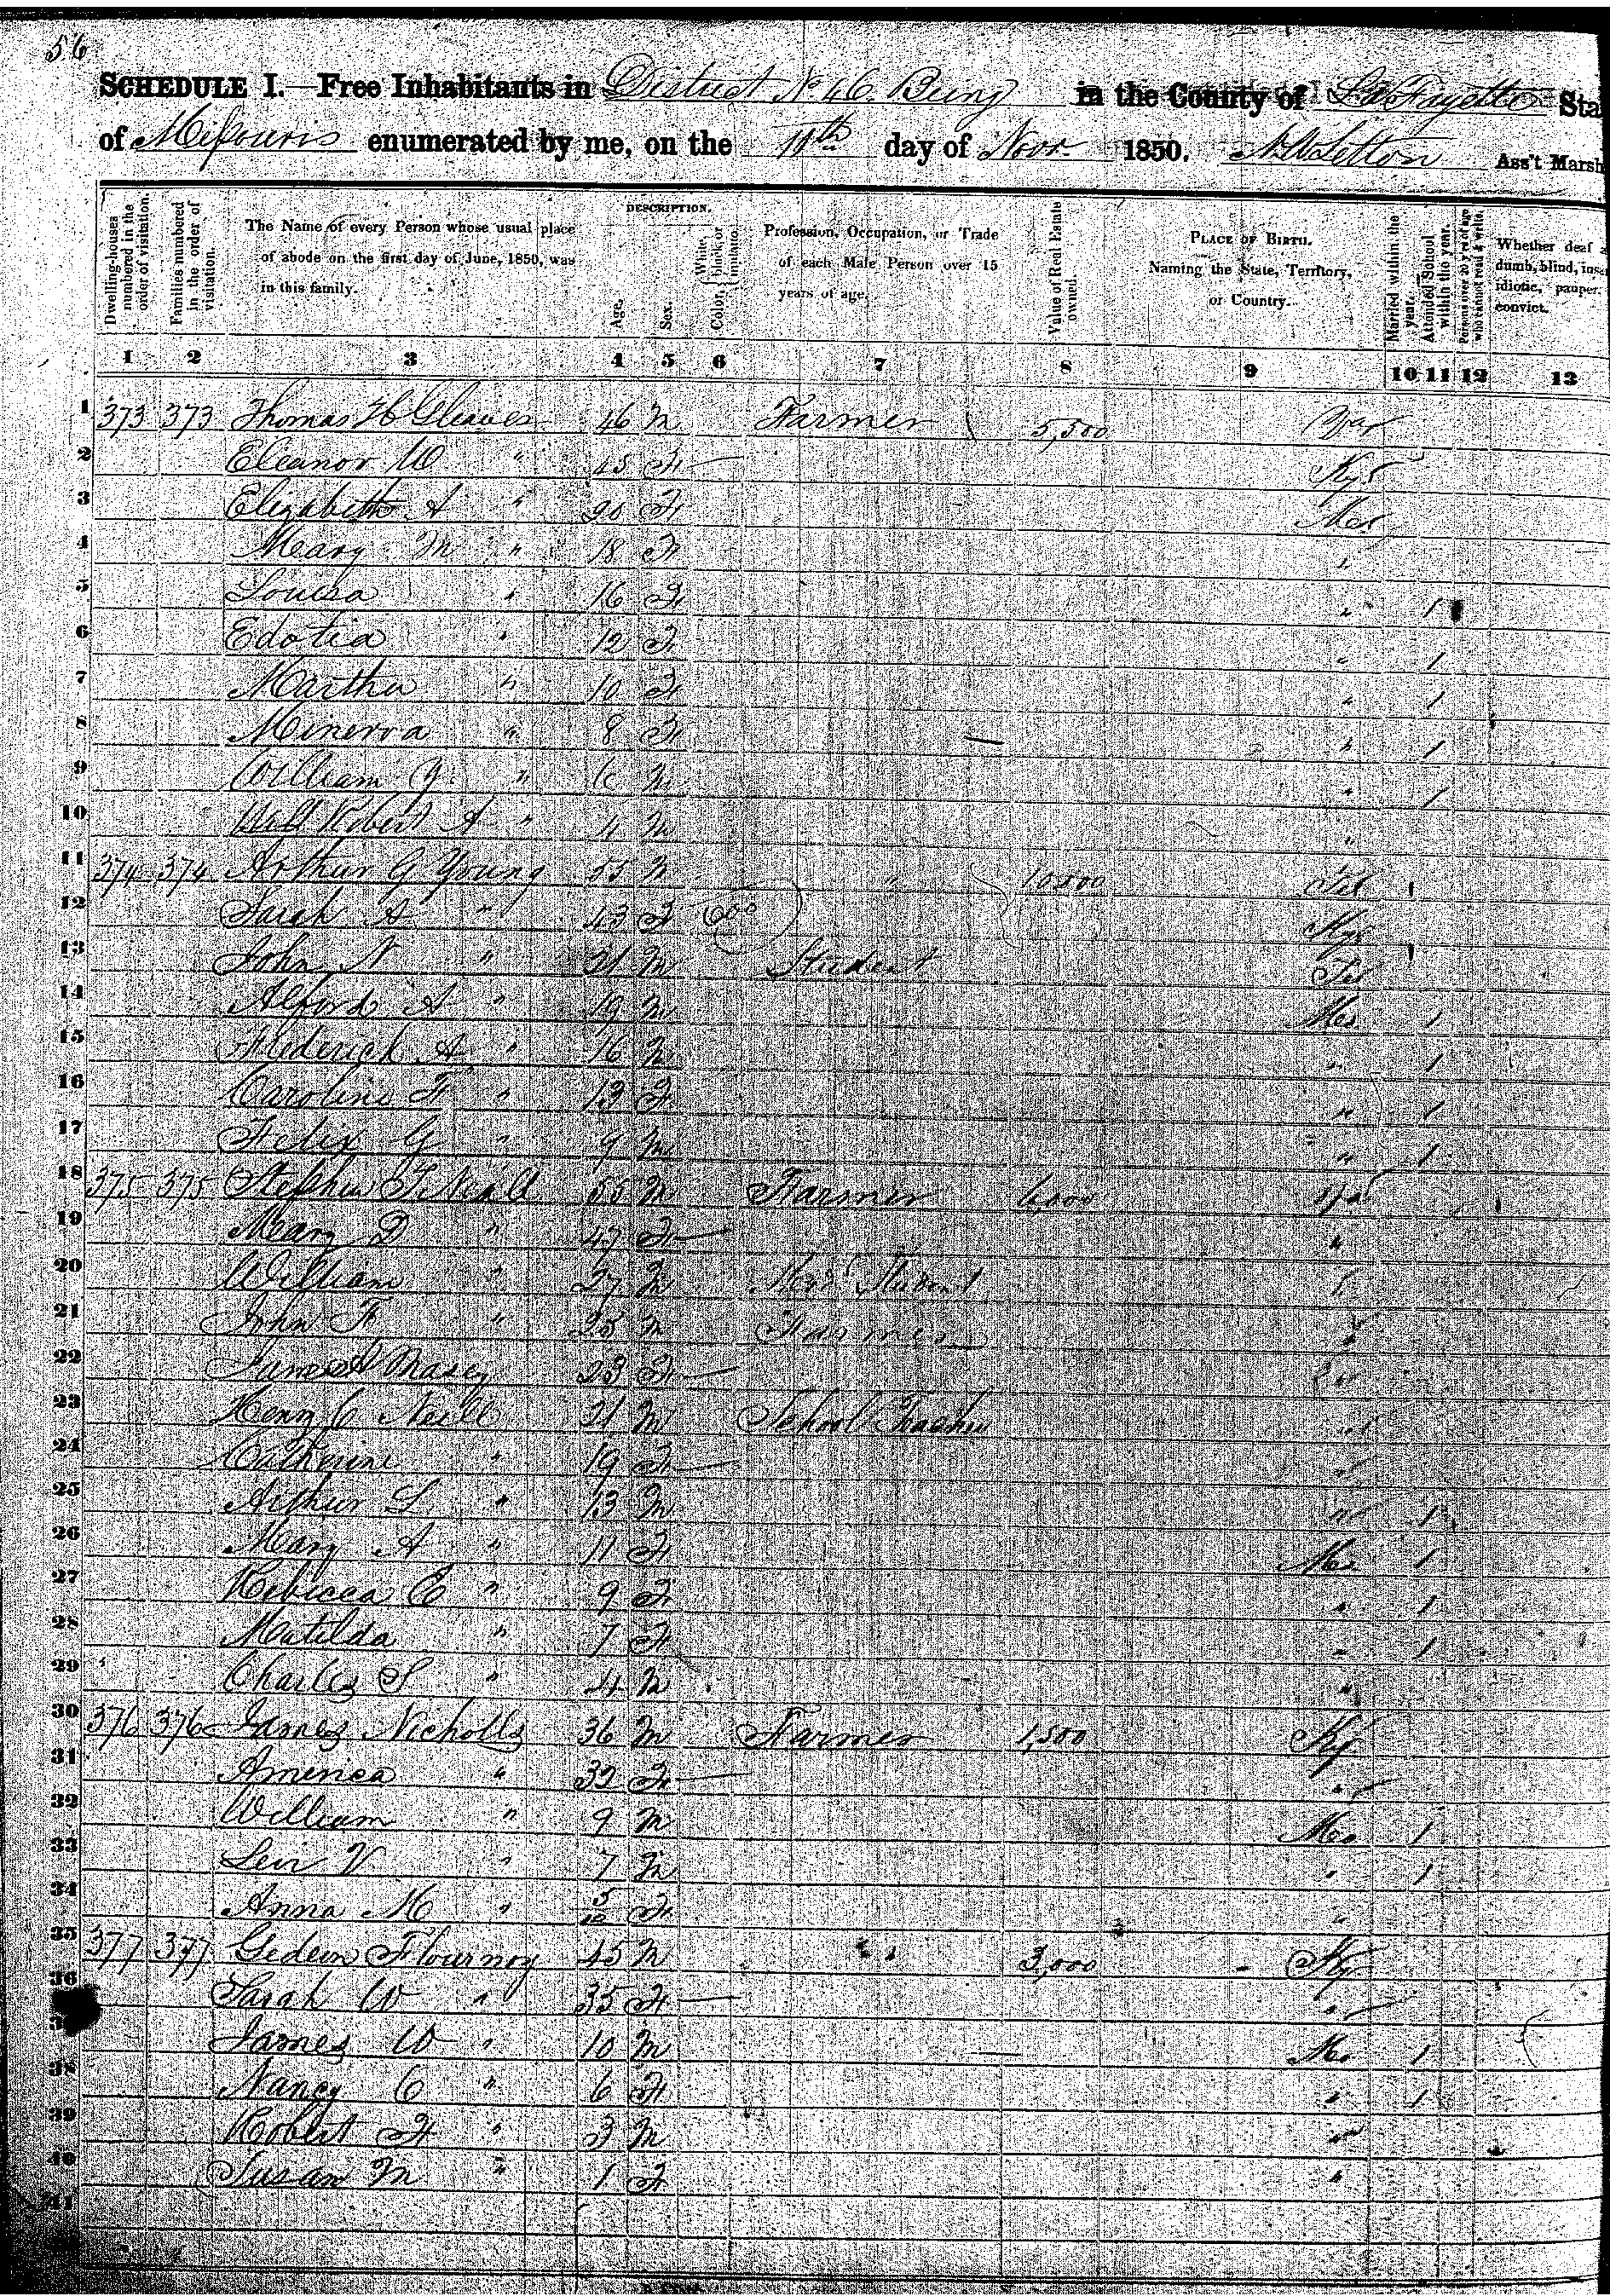 56
SCHEDULE I.—Free Inhabitants in District No 46 Being in the County of LaFayette Sta
of Missouris enumerated by me, on the 11th day of Novr. 1850. Ass't Marsh
DESCRIPTION.
Dwelling-houses numbered in the order of visitation.
Families numbered in the order of visitation.
The Name of every Person whose usual place of abode on the first day of June, 1850, was in this family.
Age.
Sex.
Color, White, black, or mulatto.
Profession, Occupation, or Trade of each Male Person over 15 years of age.
Value of Real Estate owned.
PLACE OF BIRTH. Naming the State, Territory, or Country.
Married within the year.
Attended School within the year.
Persons over 20 y'rs of age who cannot read & write.
Whether deaf a dumb, blind, insa idiotic, pauper, convict.
1 2 3 4 5 6 7 8 9 10 11 12 13
1 373 373 Thomas H Gleaves 46 M Farmer 5,500
2 Eleanor W " 45 F Ky
3 Elizabeth A " 20 F Mo
4 Mary M " 18 F "
5 Louisa " 16 F " 1
6 Edotia " 12 F " 1
7 Martha " 10 F " 1
8 Minerva " 8 F " 1
9 William " 6 M " 1
10 Robert A " 4 M "
11 374 374 Arthur G Young 55 M "
12 Sarah A " 43 F Ky
13 John " 21 M Student
14 Alford A " 19 M Mo 1
15 Frederick A " 16 M " 1
16 Caroline F " 13 F " 1
17 Felix G " 9 M " 1
18 375 375 Stephen T Neill 55 M Farmer
19 Mary D " 47 F "
20 William " 27 M Student
21 John F " 25 M Farmer "
22 23 F
23 Henry C Neill 21 M School Teacher "
24 Catherine " 19 F "
25 Arthur L " 13 M " 1
26 Mary A " 11 F Mo 1
27 Rebecca E " 9 F " 1
28 Matilda " 7 F " 1
29 Charles S " 4 M "
30 376 376 James Nicholls 36 M Farmer 1,500 Ky
31 America " 32 F "
32 William " 9 M Mo 1
33 Levi V " 7 M " 1
34 Anna M " 5/12 F "
35 377 377 Gedeon Flournoy 45 M " 3,000 Ky
36 Sarah W " 35 F "
James W " 10 M Mo 1
38 Nancy C " 6 F " 1
39 Robert F " 3 M "
40 Susan M " 1 F "
41